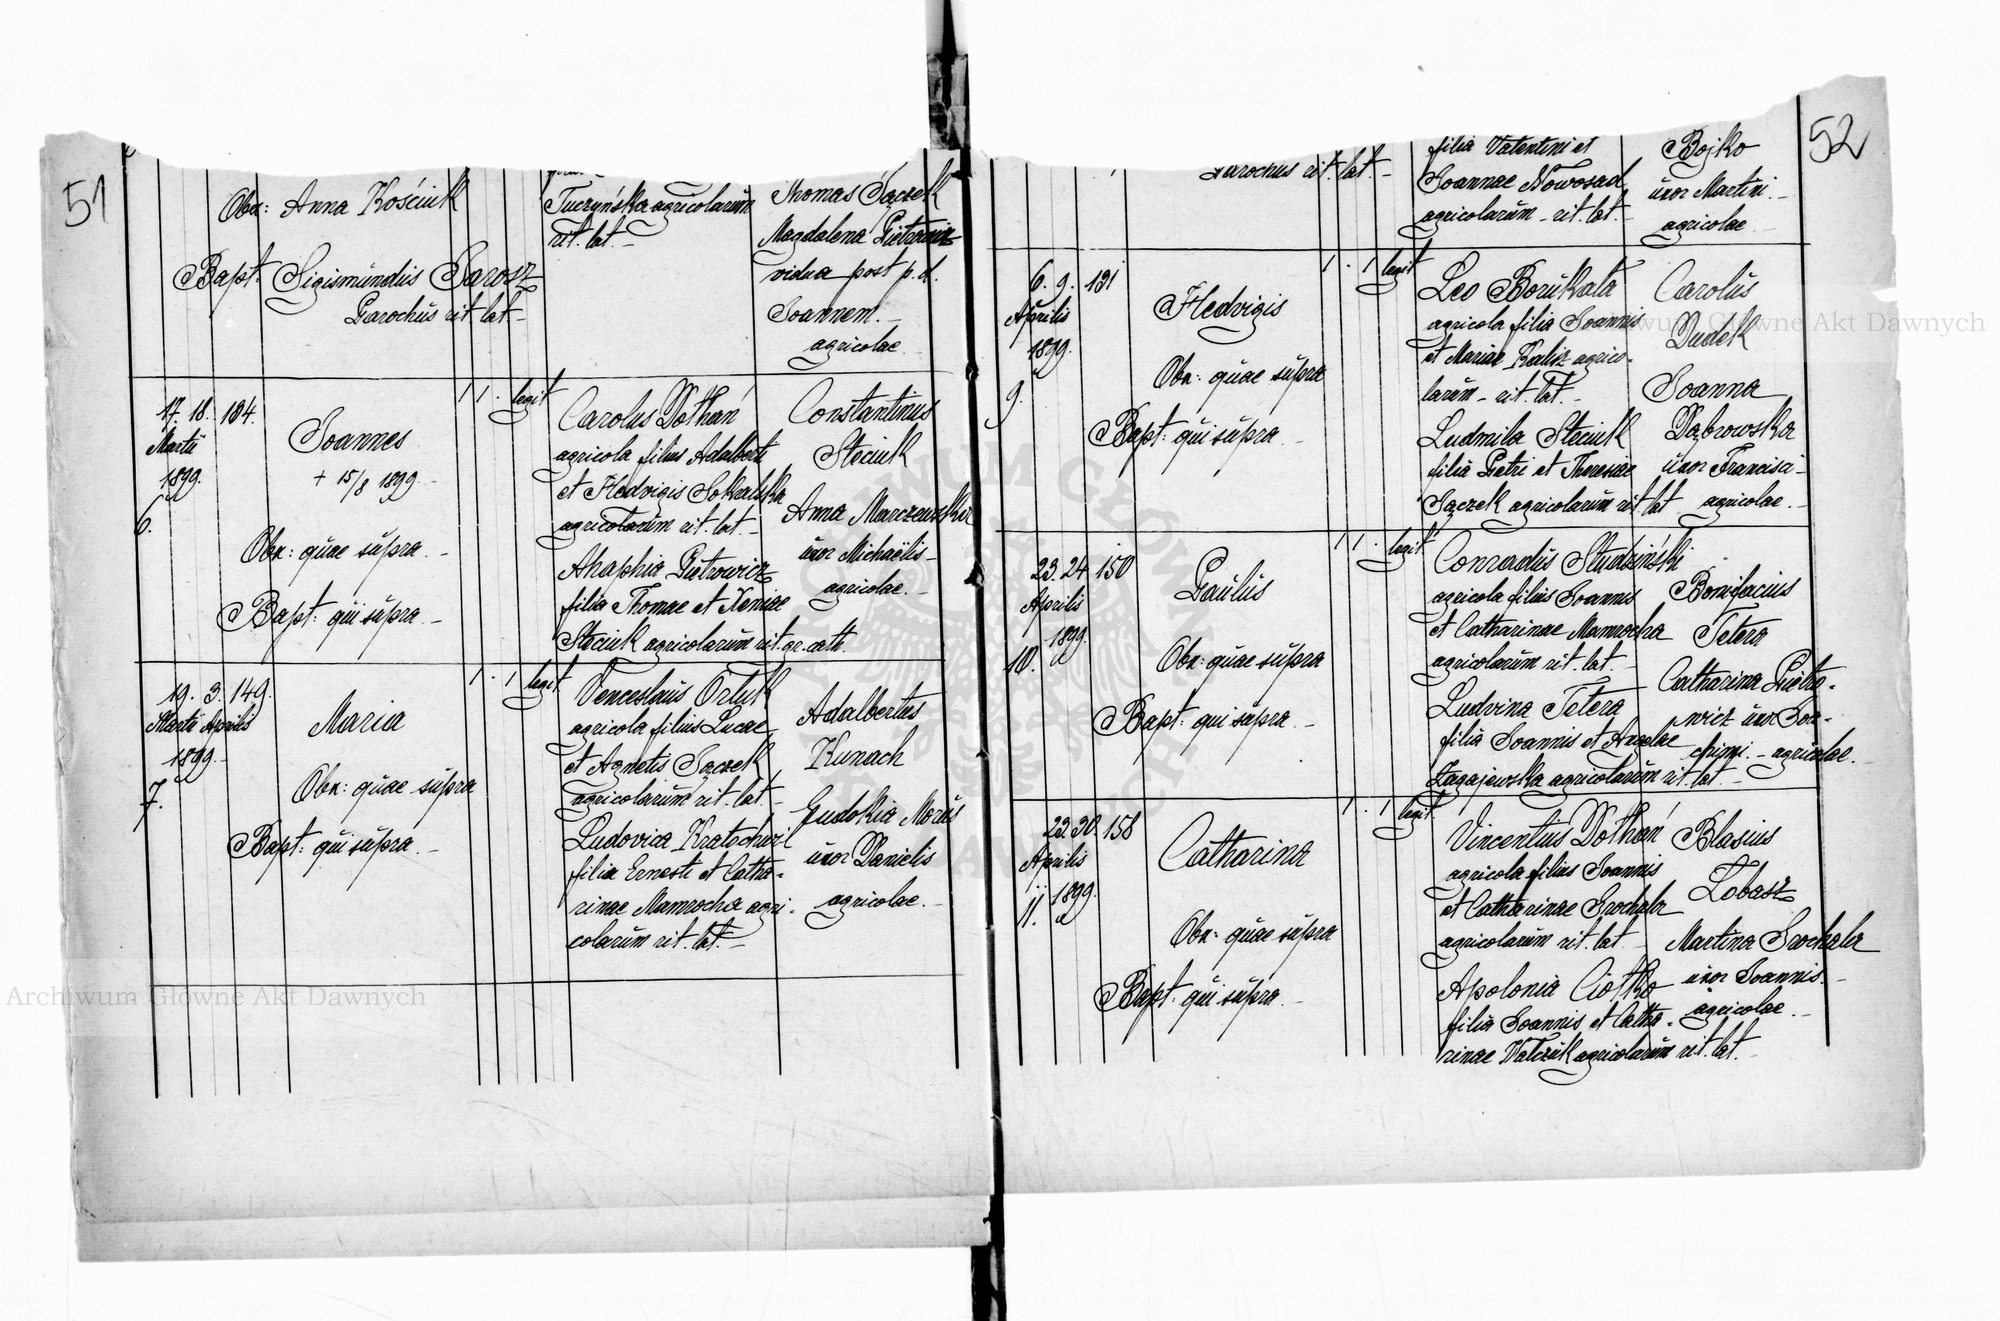 51
Obs: Anna Kościuk
Bapt: Sigismundus Sarosz
Parochus rit. lat. -
Tuczyńska agricolarum
rit. lat. -
Thomas Sączek
Magdalena Pietrowicz
vidua post p. d.
Joannem. -
agricolae
17. 18. 134.
Martii
1899.
6.
Joannes
+ 15/8 1899. -
Obs: quae supra. -
Bapt: qui supra. -
1 1 . legit
Carolus Dothań
agricola filius Adalberti
et Hedvigis Sokalska
agricolarum rit. lat. -
Ahaphia Pietrowicz
filia Thomae et Xeniae
Steciuk agricolarum rit. gr. cath.
Constantinus
Steciuk
Anna Marczewska
uxor Michaëlis -
agricolae. -
19. 3. 149.
Martii Aprilis
1899. -
7.
Maria
Obs: quae supra
Bapt: qui supra. -
1 . 1 legit
Venceslaus Orluk
agricola filius Lucae
et Agnetis Sączek
agricolarum rit. lat. -
Ludovica Kratochwil
filia Ernesti et Catha-
rinae Mamrocha agri-
colarum rit. lat. -
Adalbertus
Kunach
Eudokia Morus
uxor Danielis
agricolae. -
52
Parochus rit. lat. -
filia Valentini et
Joannae Nowosad
agricolarum - rit. lat. -
Bojko
uxor Martini. -
agricolae
6. 9. 131
Aprilis
1899.
9.
Hedvigis
Obs: quae supra
Bapt: qui supra. -
1 . 1 legit
Leo Borukała
agricola filia Joannis
et Mariae Kalisz agrico-
larum - rit. lat. -
Ludmila Steciuk
filia Petri et Theresiae
Sączek agricolarum rit. lat
Carolus
Dudek
Joanna
Dąbrowska
uxor Francisci -
agricolae. -
23. 24 150
Aprilis
1899.
10.
Paulus
Obs: quae supra
Bapt: qui supra. -
1 1 . legit
Conradus Studziński
agricola filius Joannis
et Catharinae Mamrocha
agricolarum rit. lat. -
Ludvina Tetera
filia Joannis et Angelae
Zagajewska agricolarum rit. lat. -
Bonifacius
Tetera
Catharina Pietro-
wicz uxor Joa-
chimi. - agricolae.
22. 30. 158
Aprilis
1899.
11.
Catharina
Obs: quae supra
Bapt: qui supra. -
1 . 1 legit
Vincentius Dothań
agricola filius Joannis
et Catharinae Srochala
agricolarum rit. lat. -
Apolonia Ciotko
filia Joannis et Catha-
rinae Walczuk agricolarum rit. lat. -
Blasius
Łobasz
Martina Srochala
uxor Joannis. -
agricolae. -
Archiwum Główne Akt Dawnych
Archiwum Główne Akt Dawnych